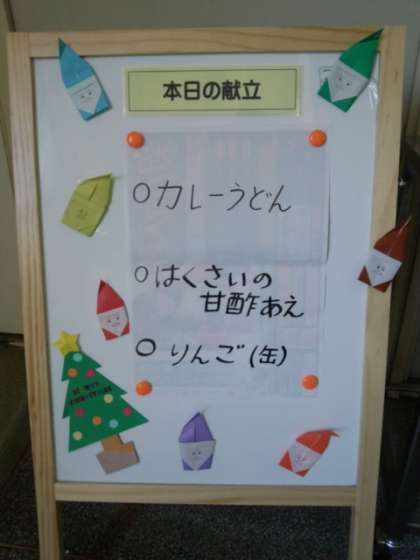 本日の献立
○カレーうどん
○はくさいの
甘酢あえ
○りんご(缶)